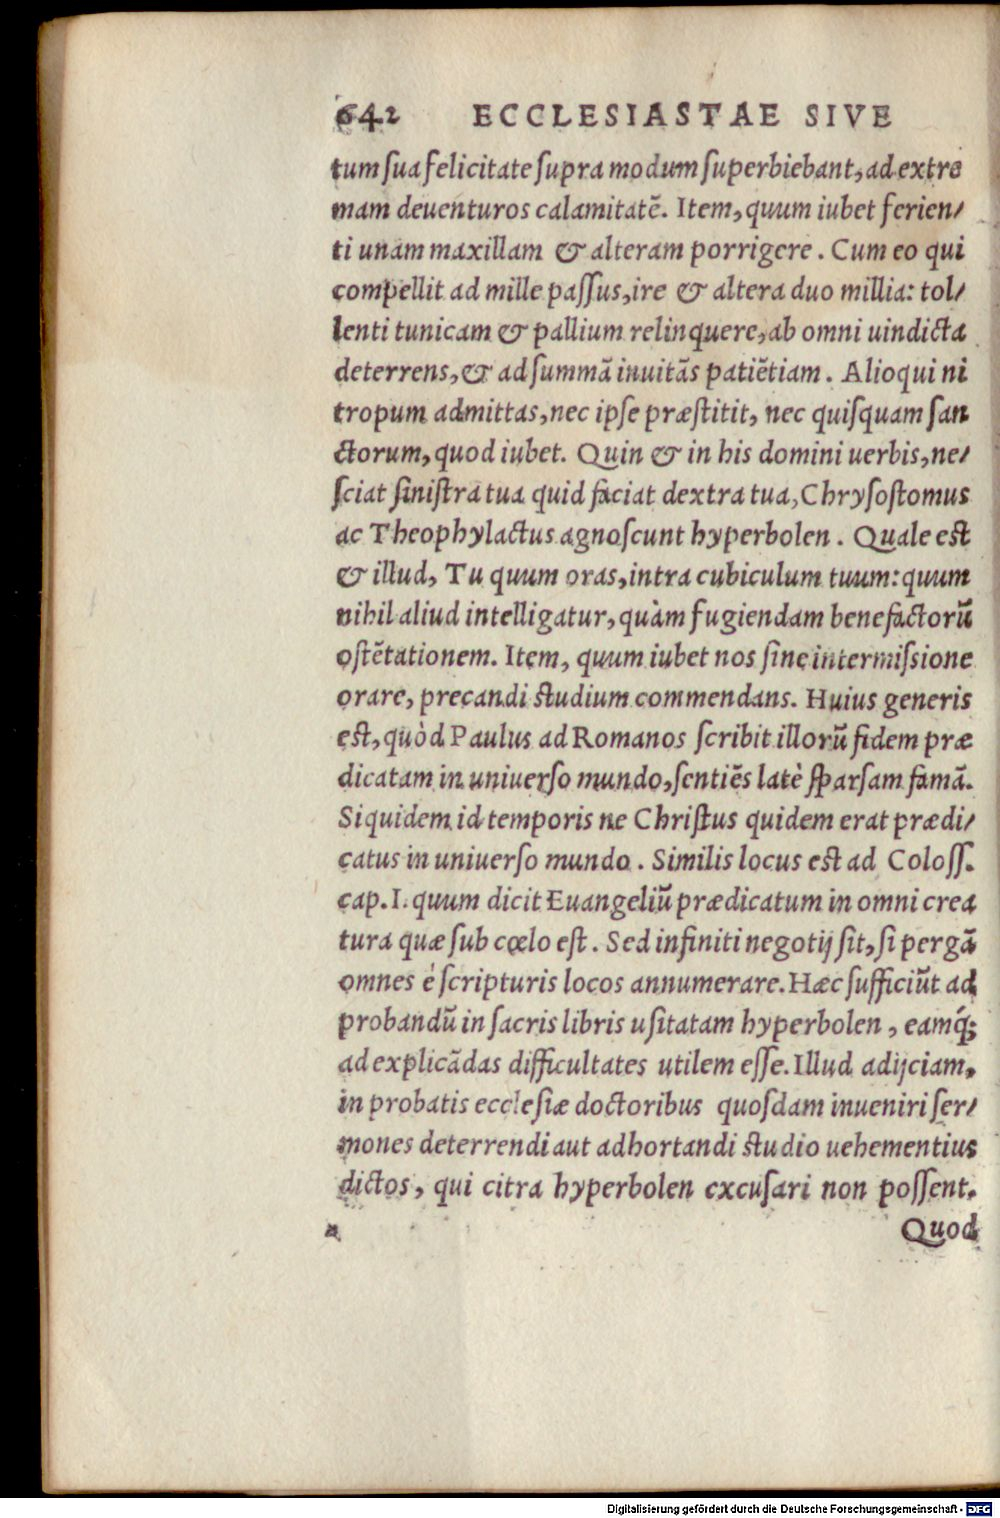 642 ECCLESIASTAE SIVE
tum sua felicitate supra modum superbiebant, ad extre
mam deuenturos calamitatē. Item, quum iubet ferien/
ti unam maxillam & alteram porrigere. Cum eo qui
compellit ad mille passus, ire & altera duo millia: tol/
lenti tunicam & pallium relinquere, ab omni uindicta
deterrens, & ad summā inuitās patiētiam. Alioqui ni
tropum admittas, nec ipse præstitit, nec quisquam san
ctorum, quod iubet. Quin & in his domini uerbis, ne/
sciat sinistra tua quid faciat dextra tua, Chrysostomus
ac Theophylactus agnoscunt hyperbolen. Quale est
& illud, Tu quum oras, intra cubiculum tuum: quum
nihil aliud intelligatur, quàm fugiendam benefactorū
ostētationem. Item, quum iubet nos sine intermissione
orare, precandi studium commendans. Huius generis
est, quòd Paulus ad Romanos scribit illorū fidem præ
dicatam in uniuerso mundo, sentiēs latè sparsam famā.
Siquidem id temporis ne Christus quidem erat prædi/
catus in uniuerso mundo. Similis locus est ad Coloss.
cap. I. quum dicit Euangeliū prædicatum in omni crea
tura quæ sub cœlo est. Sed infiniti negotij sit, si pergā
omnes è scripturis locos annumerare. Hæc sufficiūt ad
probandū in sacris libris usitatam hyperbolen, eamq́;
ad explicādas difficultates utilem esse. Illud adijciam,
in probatis ecclesiæ doctoribus quosdam inueniri ser/
mones deterrendi aut adhortandi studio uehementius
dictos, qui citra hyperbolen excusari non possent.
Quod
Digitalisierung gefördert durch die Deutsche Forschungsgemeinschaft - DFG